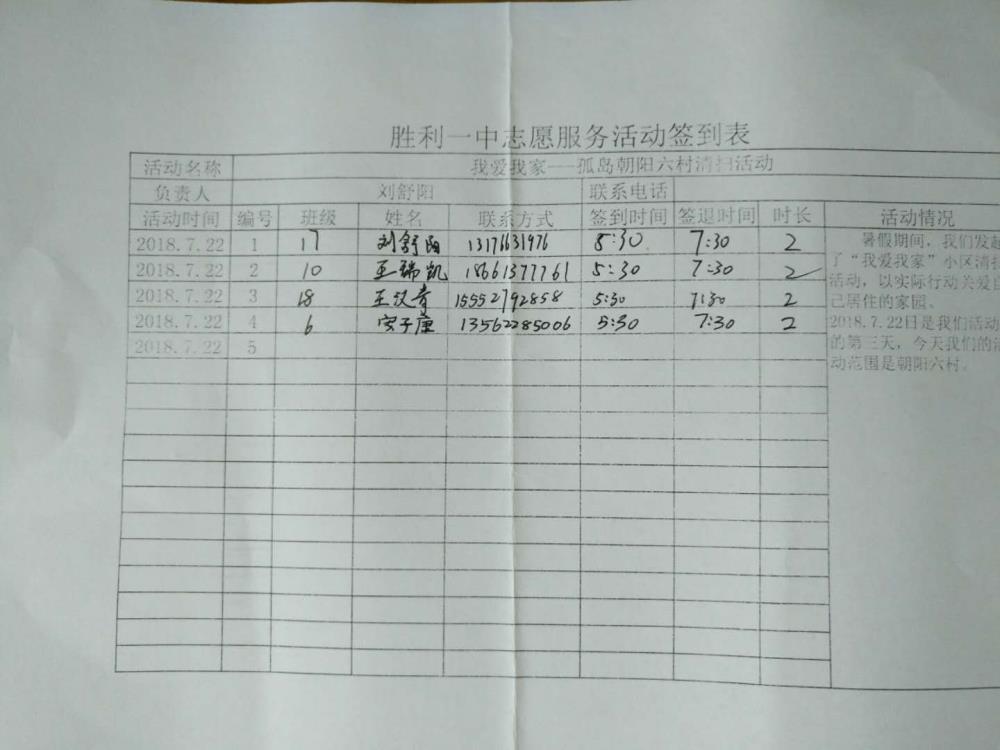 胜利一中志愿服务活动签到表
活动名称 我爱我家---孤岛朝阳六村清扫活动
负责人 刘舒阳 联系电话
活动时间 编号 班级 姓名 联系方式 签到时间 签退时间 时长 活动情况
2018.7.22 1 17 刘舒阳 13176631976 5:30 7:30 2
2018.7.22 2 10 王瑞凯 18661377761 5:30 7:30 2
2018.7.22 3 18 王汶青 15552792858 5:30 7:30 2
2018.7.22 4 6 安子康 13562285006 5:30 7:30 2
2018.7.22 5
暑假期间，我们发起
了“我爱我家”小区清扫
活动，以实际行动关爱自
己居住的家园。
2018.7.22日是我们活动
的第三天，今天我们的活
动范围是朝阳六村。